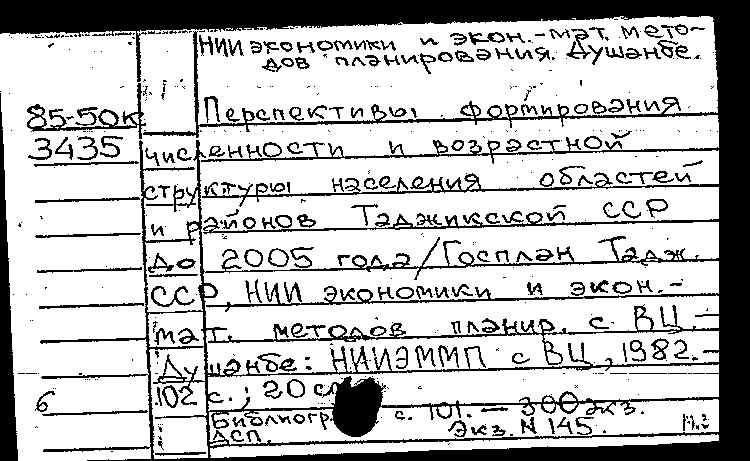 НИИ экономики и экон.-мат. мето-
дов планирования. Душанбе.
85-50к
3435
Перспективы формирования
численности и возрастной
структуры населения областей
и районов Таджикской ССР
до 2005 года/Госплан Тадж.
ССР, НИИ экономики и экон.-
мат. методов планир. с ВЦ.–
Душанбе: НИИЭММП с ВЦ, 1982.–
6
102 с.; 20 см
Библиогр с. 101. – 300 экз.
ДСП. Экз. N 145.